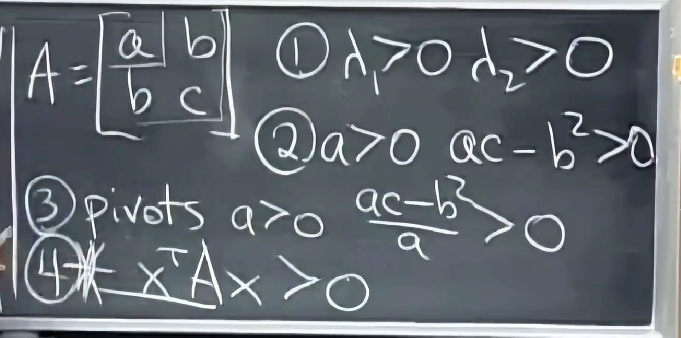 A = [a b; b c] ① λ₁>0 λ₂>0
② a>0 ac-b²>0
③ pivots a>0 (ac-b²)/a >0
④ xᵀAx >0